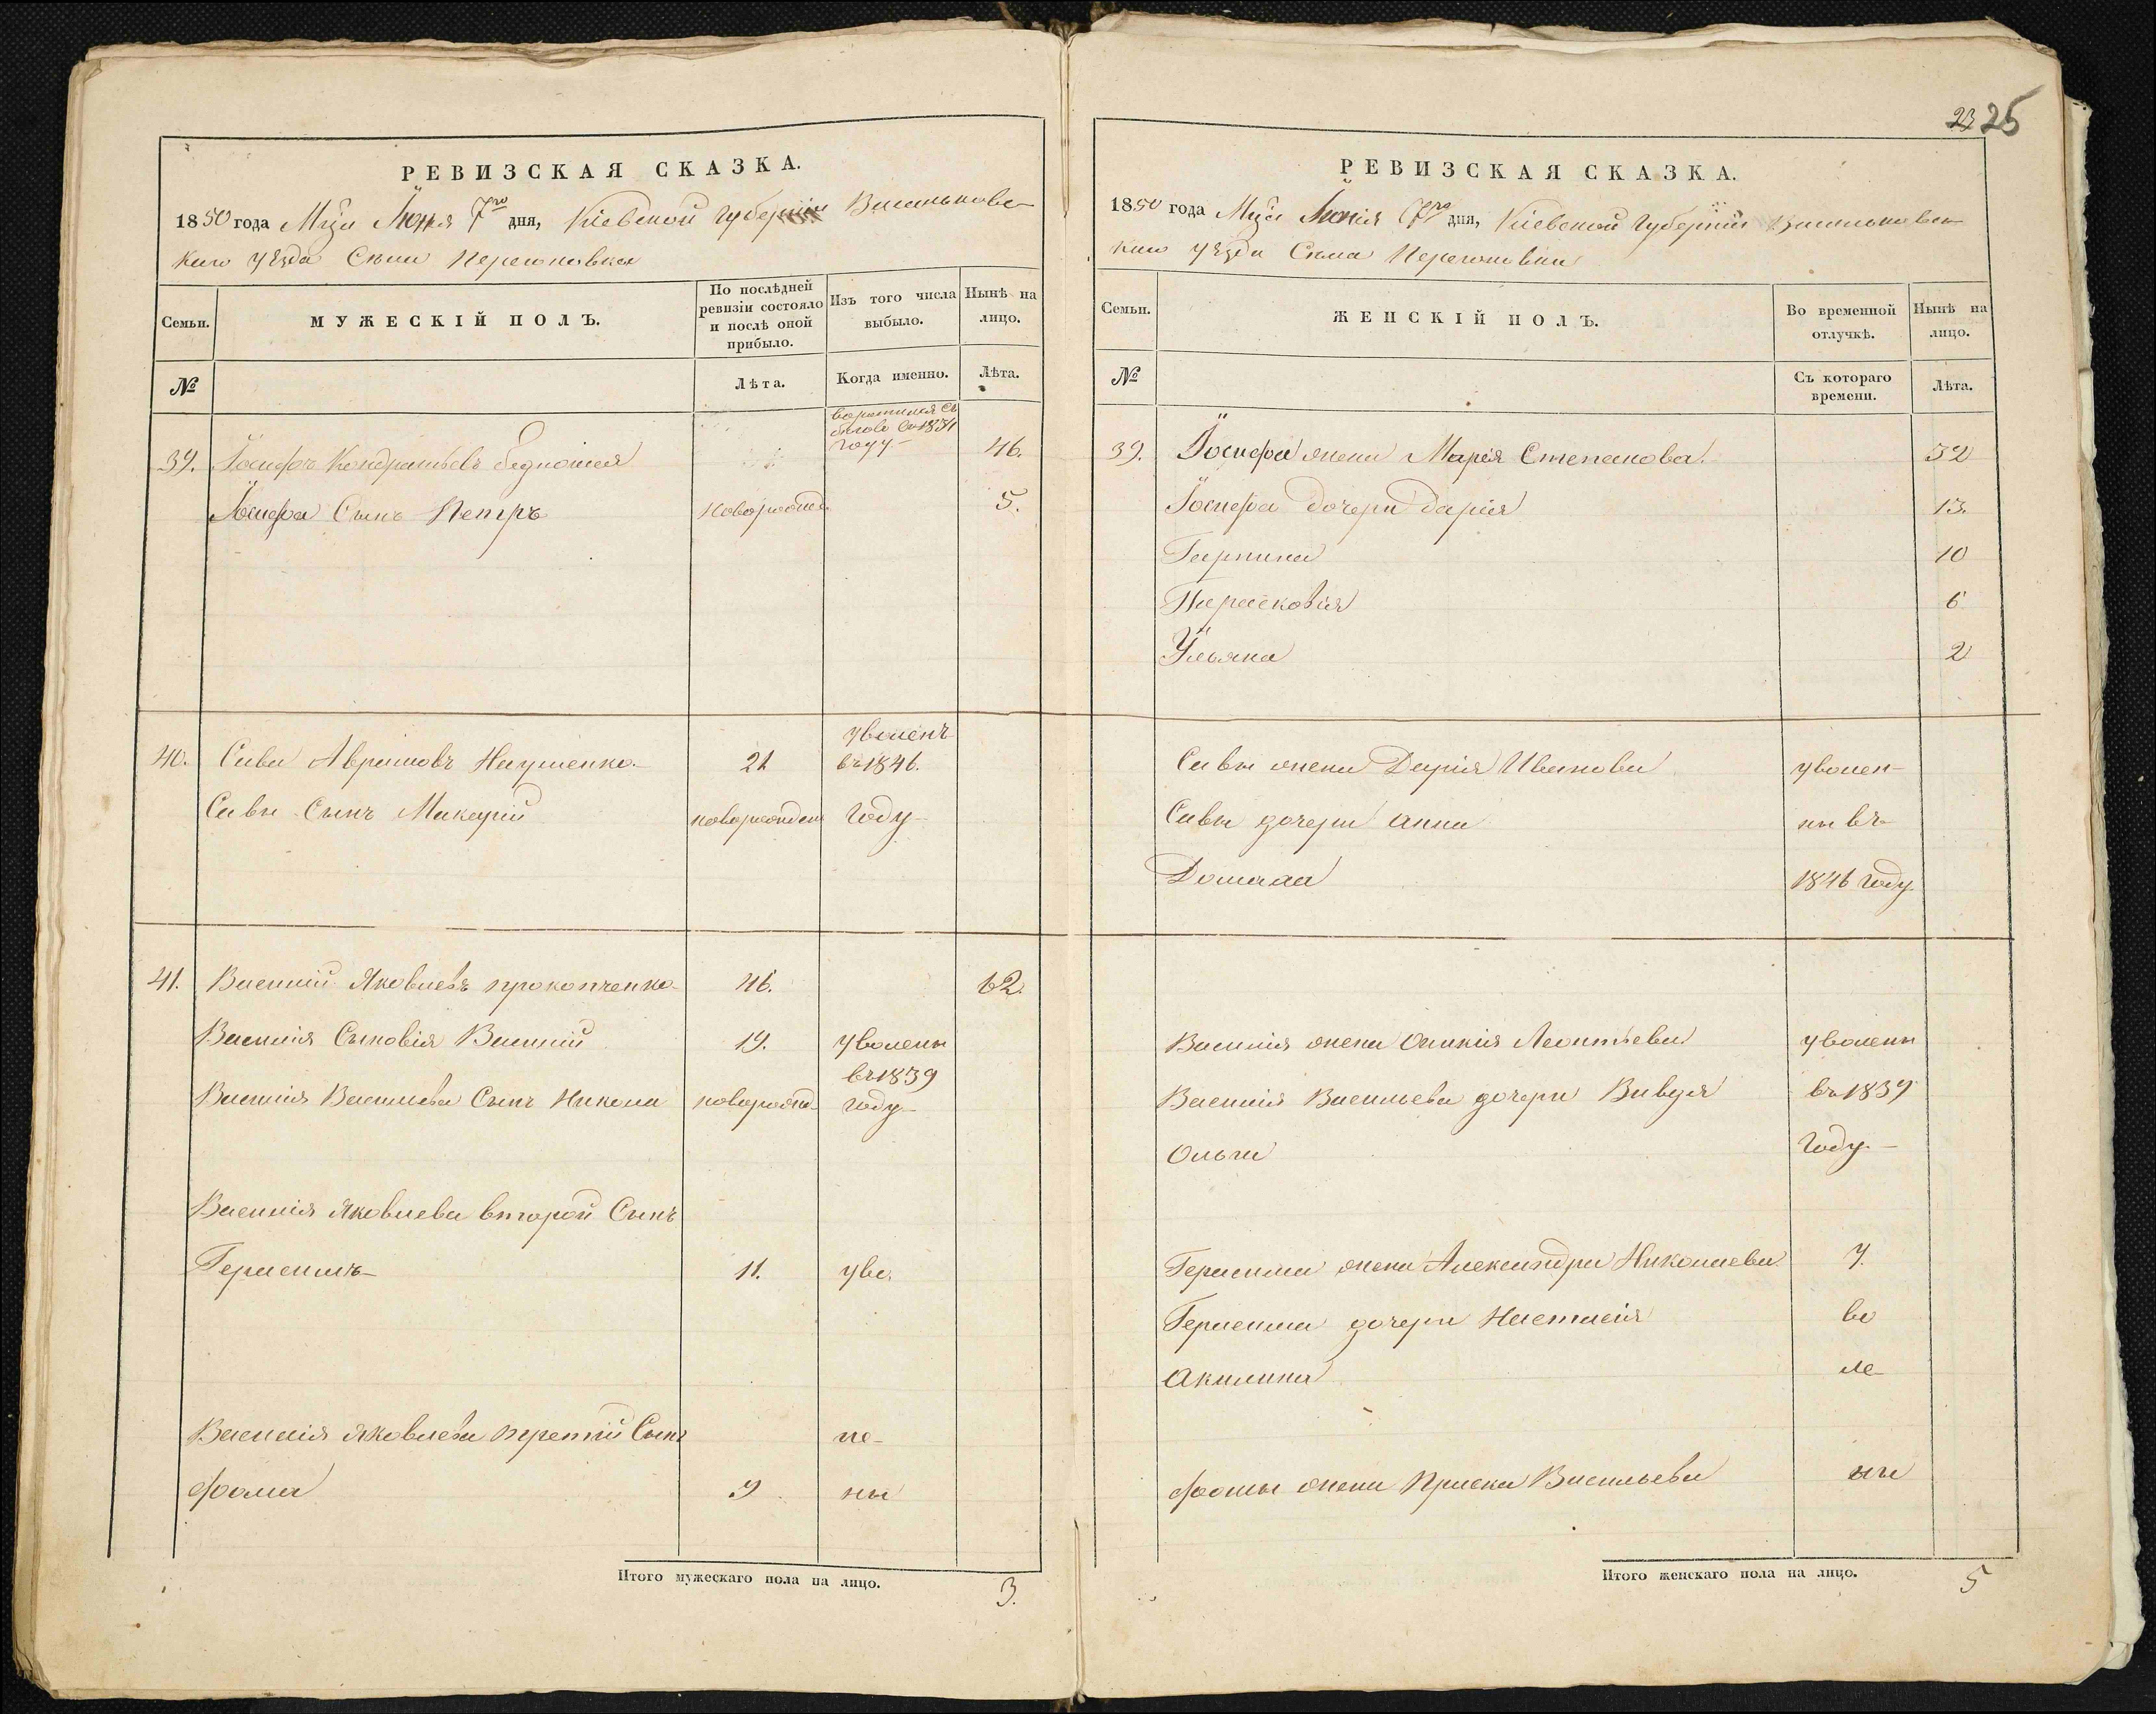 РЕВИЗСКАЯ СКАЗКА.
1850 года Мца Іюня 7го дня, Кіевской Губерніи Васильковс-
каго уѣзда Села
Семьи.
МУЖЕСКІЙ ПОЛЪ.
По послѣдней ревизіи состояло и послѣ оной прибыло.
Изъ того числа выбыло.
Нынѣ на лицо.
№
Лѣта.
Когда именно.
Лѣта.
въ 1834 году
39. Іосифъ Кондратьевъ 46.
Іосифа Сынъ Петръ новорожд. 5.
40. Сава Аврамовъ Науменко 21 уволенъ въ 1846.
Савы Сынъ Макарій новорожден году
41. Василій Яковлевъ прокопченко 46. 62.
Василія Сыновія Василій 19. уволены
въ 1839
Василія Васильева Сынъ Никола новорожд. году
Василія Яковлева второй Сынъ
Герасимъ 11. уво.
Василія Яковлева третій Сынъ ле-
Фома 9 ны
Итого мужескаго пола на лицо. 3.
23 25
РЕВИЗСКАЯ СКАЗКА.
1850 года Мца Іюнія 7го дня, Кіевской Губерніи Васильковс-
каго уѣзда Села
Семьи.
ЖЕНСКІЙ ПОЛЪ.
Во временной отлучкѣ.
Нынѣ на лицо.
№
Съ котораго времени.
Лѣта.
39. Іосифа жена Марія Степанова. 32
Іосифа дочери Дарія 13.
Гарпина 10
Парасковія 6
Ульяна 2
Савы жена Дарія Иванова уволен-
Савы дочери Анна ны въ
Домаха 1846 году
Василія жена Леонтьева уволены
Василія Васильева дочери Вивдя въ 1839
Ольга году
Герасима жена Александра Николаева у.
Герасима дочери Настасія во
Акилина ле
Фомы жена Приска Васильева ны
Итого женскаго пола на лицо. 5